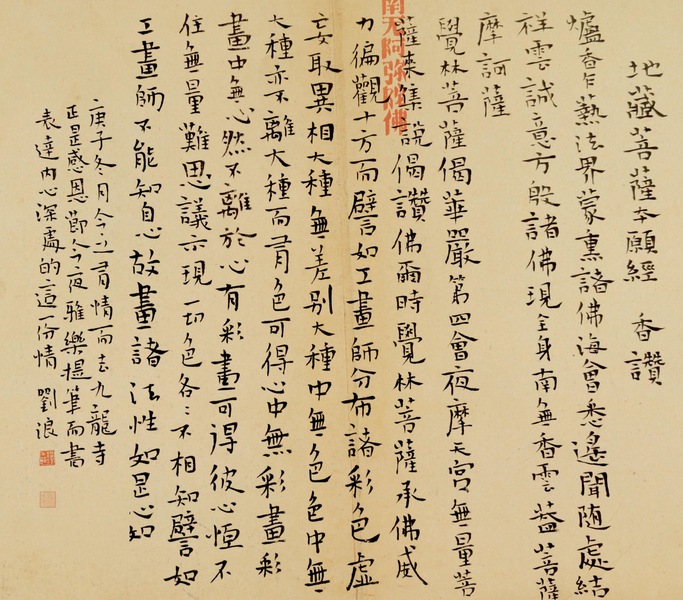 地藏菩薩本願經 香讚
爐香乍爇法界蒙熏諸佛海會悉遙聞隨處結
祥雲誠意方殷諸佛現全身南無香雲蓋菩薩
摩訶薩
覺林菩薩偈華嚴第四會夜摩天宮無量菩
薩來集說偈讚佛爾時覺林菩薩承佛威
力徧觀十方而說譬言如工畫師分布諸彩色虛
妄取異相大種無差別大種中無色色中無
大種亦不離大種而有色可得心中無彩畫彩
畫中無心然不離於心有彩畫可得彼心恆不
住無量難思議示現一切色各各不相知譬言如
工畫師不能知自心故畫諸法性如是心如
庚子冬月今之有情而去九龍寺
正是感恩節今夜雅樂提筆而書
表達內心深處的這一份情 劉浪
南无阿弥陀佛